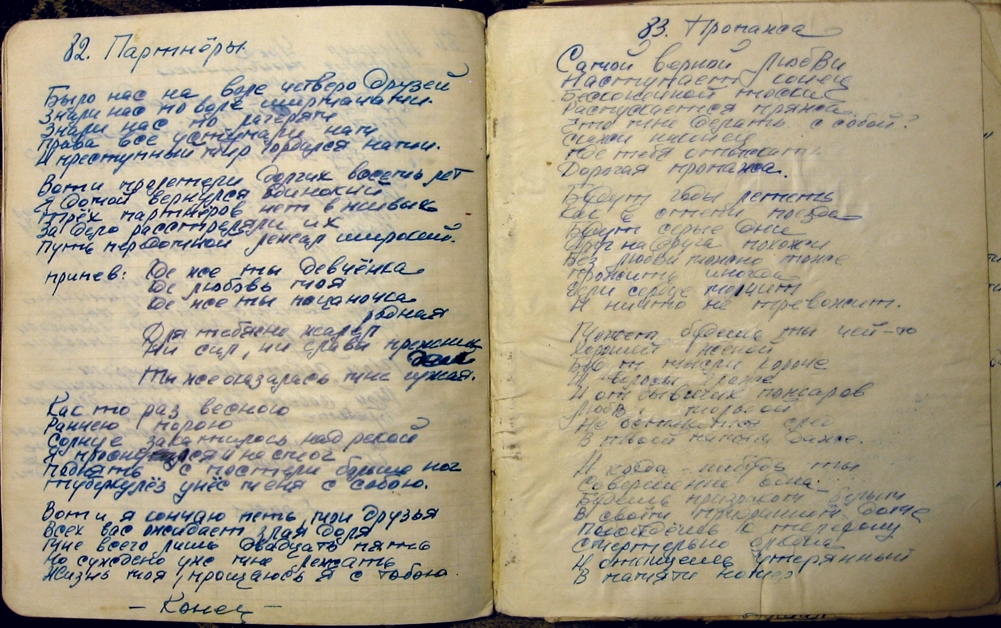 82. Партнёры.
Было нас на воле четверо друзей
Знали нас по воле ширмачами.
Знали нас по лагерям
Права все уступали нам
И преступный мир гордился нами.
Вот и пролетели долгих восемь лет
Я домой вернулся одинокий
Трёх партнёров нет в живых
За дело расстреляли их
Путь передо мной лежал широкий.
припев: Где же ты девчёнка
Где любовь моя
Где же ты пацаночка
родная
Для тебя не жалел
Ни сил, ни славы прежних
дел
Ты же оказалась мне чужая.
Как то раз весною
Раннею порою
Солнце закатилось над рекой
Я проснулся и не смог
Поднять с постели больше ног
Туберкулёз унёс меня с собою.
Вот и я кончаю петь мои друзья
Всех вас ожидает злая доля
Мне всего лишь двадцать пять
Но суждено уже мне лежать
Жизнь моя, прощаюсь я с тобою.
- Конец -
83. Пропажа
Самой верной любви
Наступает конец
Бесконечной тоски
Распускается пряжа
Что мне делать с собой?
Где тебя отыскать
Дорогая пропажа.
Будут годы лететь
Как в степи поезда
Будут серые дни
Друг на друга похожи
Без любви можно тоже
Прожить иногда
Если сердце молчит
И ничто не тревожит.
Может будешь ты чьей-то
Хорошей женой
Будут мысли короче
И волосы
И от бывших пожаров
Любви
Не останется
В твоей
И когда-нибудь ты
Совершенно одна
Будешь призраком белым
В своём
Подойдёшь к телефону
Смертельно бледна
И отыщешь утерянный
В памяти номер